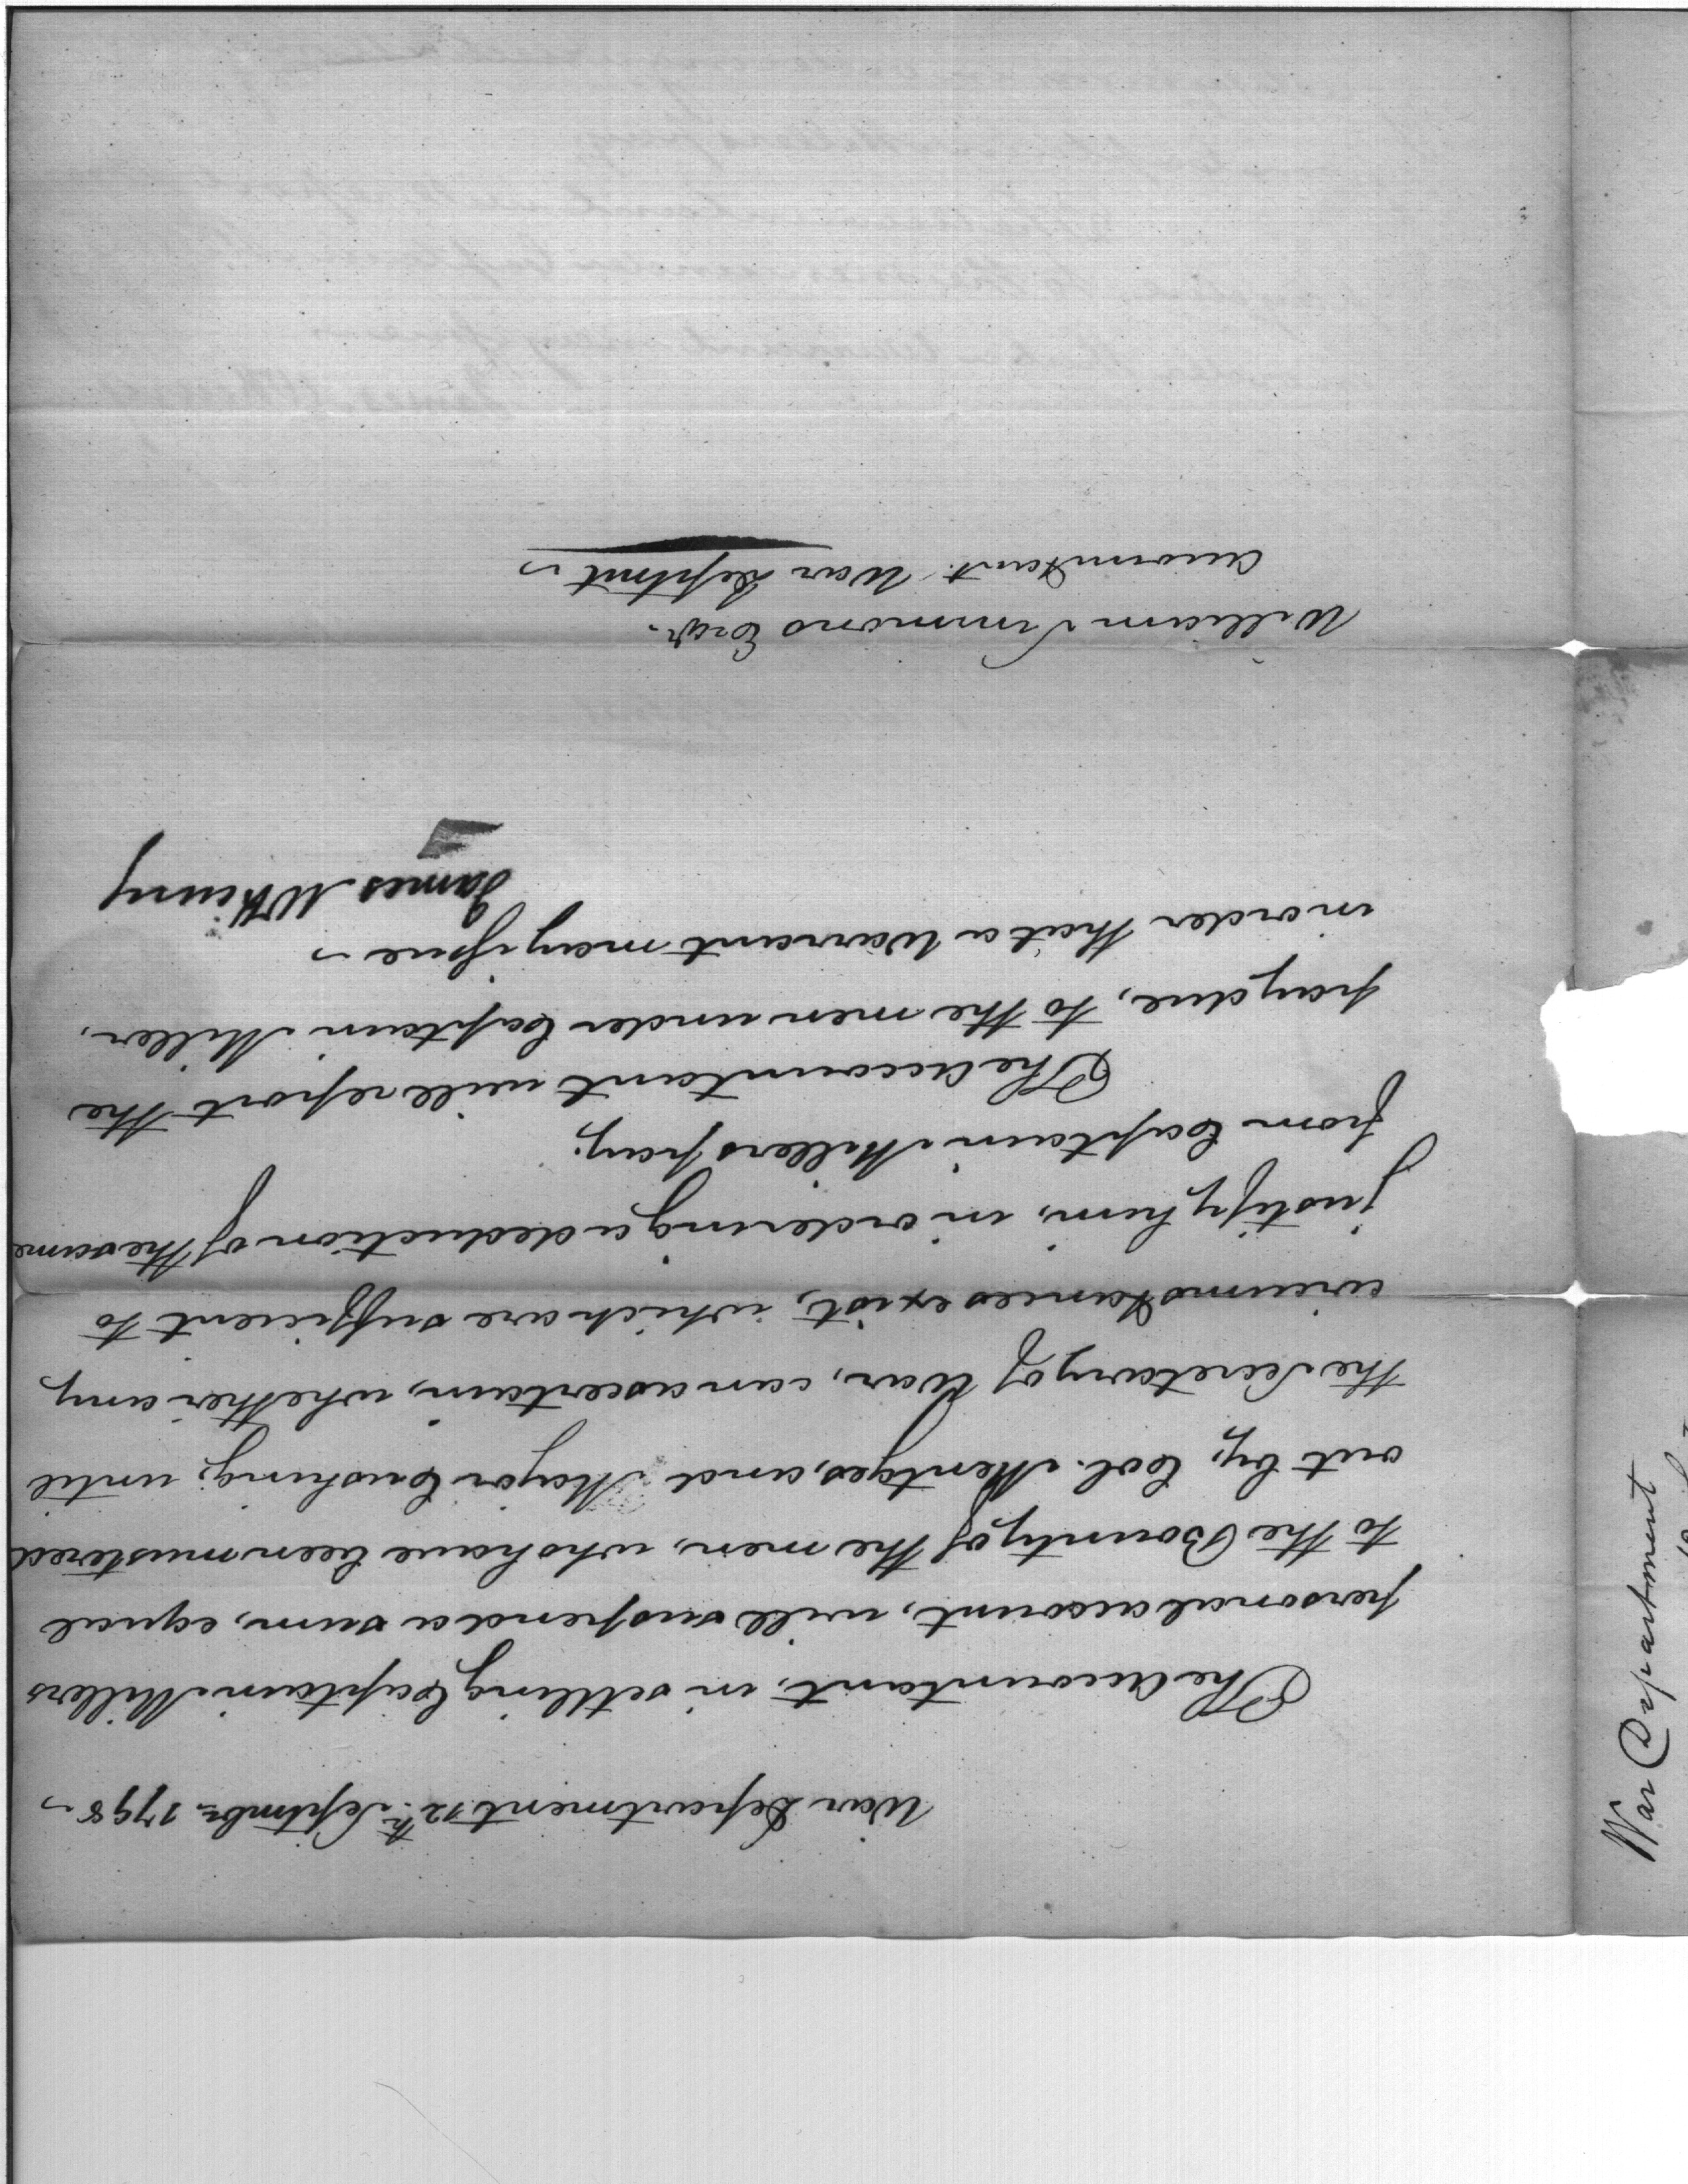 War Department 12th. Septmbr. 1798
The Accountant, in settling Captain Millers
personal account, will suspend a sum, equal
to the Bounty of the men, who have been mustered
out by, Col. Mentges, and Major Cushing; until
the Secretary of War, can ascertain, whether any
circumstances exist, which are sufficient to
justify him, in ordering a deduction of the same
from Captain Millers pay.
The Accountant will report the
pay due, to the men under Captain Miller,
in order that a Warrant may issue
James McHenry
William Simmons Esqr.
Accountant War Deptmt
War Department